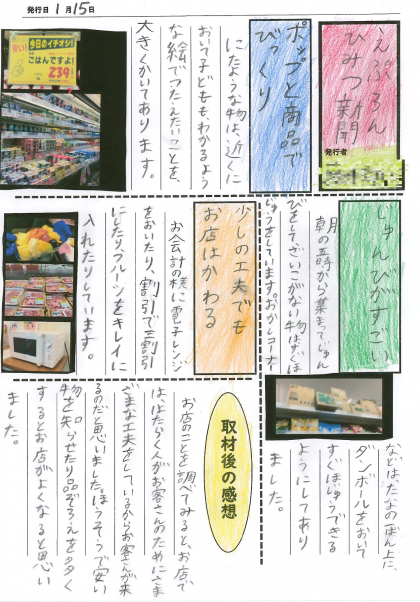 発行日 1月15日
えぷろん
ひみつ新聞
発行者
ポップと商品で
びっくり
にたような物は、近くに
おいて子どももわかるよう
な絵でつたえたいことを、
大きくかいてあります。
今日のイチオシ!
ごはんですよ!
239!
じゅんびがすごい
朝の五時から集まってじゅん
びをしてざいこがない物はほじ
ゅうをしています。おかしコーナー
などは、たなの一ばん上に、
ダンボールをおいて
すぐほじゅうできる
ようにしてあり
ました。
少しの工夫でも
お店はかわる
お会計の横に電子レンジ
をおいたり、割引で三割引
にしたり、フルーツをキレイに
入れたりしています。
取材後の感想
お店のことを調べてみると、お店で
は、はたらく人がお客さんのためにさま
ざまな工夫をしているからお客さんが来
るのだと思いました。ほうそうで安い
物を知らせたり品ぞろえを多く
するとお店がよくなると思い
ました。